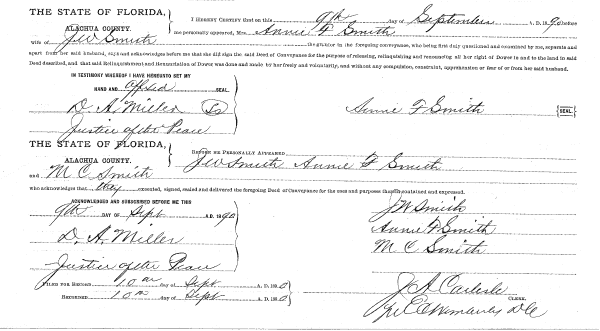 THE STATE OF FLORIDA,
ALACHUA COUNTY.
I HEREBY CERTIFY that on this 9th day of September A. D. 1890 before
me personally appeared, Mrs. Annie F Smith
wife of J W Smith the grantor in the foregoing conveyance, who being first duly questioned and examined by me, separate and
apart from her said husband, and acknowledges before me that she did sign the said Deed of Conveyance for the purpose of releasing, relinquishing and renouncing all her right of Dower in and to the land in said
Deed described, and that said Relinquishment and Renunciation of Dower was done and made by her freely and voluntarily, and without any compulsion, constraint, apprehension or fear of or from her said husband.
IN TESTIMONY WHEREOF I HAVE HEREUNTO SET MY
HAND AND Official SEAL.
D. A. Miller
Justice of the Peace
Annie F Smith {SEAL}
THE STATE OF FLORIDA,
ALACHUA COUNTY.
BEFORE ME PERSONALLY APPEARED J W Smith Annie F Smith
and M C Smith
who acknowledges that they executed, signed, sealed and delivered the foregoing Deed of Conveyance for the uses and purposes therein contained and expressed.
ACKNOWLEDGED AND SUBSCRIBED BEFORE ME THIS
9th DAY OF Sept A.D. 1890
D. A. Miller
Justice of the Peace
J W Smith
Annie F Smith
M C Smith
FILED FOR RECORD 10 day of Sept A. D. 1890
RECORDED 10 day of Sept A. D. 1890
J A Carlisle CLERK.
DC